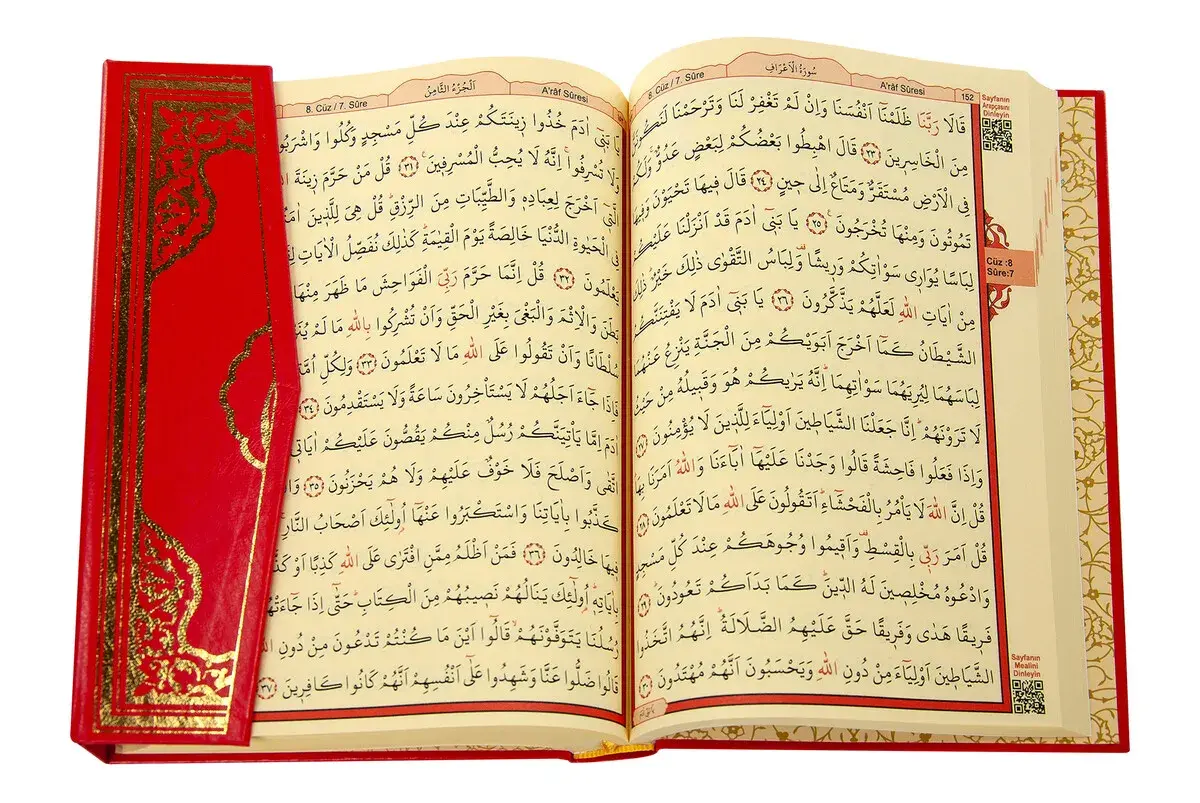 8. Cüz / 7. Sûre
سُورَةُ الْاَعْرَافِ
A'râf Sûresi
152
Sayfanın
Arapçasını
Dinleyin
قَالَا رَبَّنَا ظَلَمْنَٓا اَنْفُسَنَا وَاِنْ لَمْ تَغْفِرْ لَنَا وَتَرْحَمْنَا لَنَكُونَنَّ
مِنَ الْخَاسِرٖينَ ﴿٢٣﴾ قَالَ اهْبِطُوا بَعْضُكُمْ لِبَعْضٍ عَدُوٌّۚ وَلَكُمْ
فِي الْاَرْضِ مُسْتَقَرٌّ وَمَتَاعٌ اِلٰى حٖينٍ ﴿٢٤﴾ قَالَ فٖيهَا تَحْيَوْنَ وَفٖيهَا
تَمُوتُونَ وَمِنْهَا تُخْرَجُونَ۟ ﴿٢٥﴾ يَا بَنٖٓي اٰدَمَ قَدْ اَنْزَلْنَا عَلَيْكُمْ
لِبَاسًا يُوَارٖي سَوْاٰتِكُمْ وَرٖيشًاۜ وَلِبَاسُ التَّقْوٰى ذٰلِكَ خَيْرٌۜ ذٰلِكَ
مِنْ اٰيَاتِ اللّٰهِ لَعَلَّهُمْ يَذَّكَّرُونَ ﴿٢٦﴾ يَا بَنٖٓي اٰدَمَ لَا يَفْتِنَنَّكُمُ
الشَّيْطَانُ كَمَٓا اَخْرَجَ اَبَوَيْكُمْ مِنَ الْجَنَّةِ يَنْزِعُ عَنْهُمَا
لِبَاسَهُمَا لِيُرِيَهُمَا سَوْاٰتِهِمَاۜ اِنَّهُ يَرٰيكُمْ هُوَ وَقَبٖيلُهُ مِنْ حَيْثُ
لَا تَرَوْنَهُمْۜ اِنَّا جَعَلْنَا الشَّيَاطٖينَ اَوْلِيَٓاءَ لِلَّذٖينَ لَا يُؤْمِنُونَ ﴿٢٧﴾
وَاِذَا فَعَلُوا فَاحِشَةً قَالُوا وَجَدْنَا عَلَيْهَٓا اٰبَٓاءَنَا وَاللّٰهُ اَمَرَنَا بِهَاۜ
قُلْ اِنَّ اللّٰهَ لَا يَأْمُرُ بِالْفَحْشَٓاءِۜ اَتَقُولُونَ عَلَى اللّٰهِ مَا لَا تَعْلَمُونَ ﴿٢٨﴾
قُلْ اَمَرَ رَبّٖي بِالْقِسْطِ۠ وَاَقٖيمُوا وُجُوهَكُمْ عِنْدَ كُلِّ مَسْجِدٍ
وَادْعُوهُ مُخْلِصٖينَ لَهُ الدّٖينَۜ كَمَا بَدَاَكُمْ تَعُودُونَۜ ﴿٢٩﴾
فَرٖيقًا هَدٰى وَفَرٖيقًا حَقَّ عَلَيْهِمُ الضَّلَالَةُۜ اِنَّهُمُ اتَّخَذُوا
الشَّيَاطٖينَ اَوْلِيَٓاءَ مِنْ دُونِ اللّٰهِ وَيَحْسَبُونَ اَنَّهُمْ مُهْتَدُونَ ﴿٣٠﴾
Cüz :8
Sûre:7
Sayfanın
Mealini
Dinleyin
8. Cüz / 7. Sûre
اَلْجُزْءُ الثَّامِنُ
A'râf Sûresi
يَا بَنٖٓي اٰدَمَ خُذُوا زٖينَتَكُمْ عِنْدَ كُلِّ مَسْجِدٍ وَكُلُوا وَاشْرَبُوا
وَلَا تُسْرِفُواۚ اِنَّهُ لَا يُحِبُّ الْمُسْرِفٖينَ۟ ﴿٣١﴾ قُلْ مَنْ حَرَّمَ زٖينَةَ
الَّتٖٓي اَخْرَجَ لِعِبَادِهٖ وَالطَّيِّبَاتِ مِنَ الرِّزْقِۜ قُلْ هِيَ لِلَّذٖينَ
فِي الْحَيٰوةِ الدُّنْيَا خَالِصَةً يَوْمَ الْقِيٰمَةِۜ كَذٰلِكَ نُفَصِّلُ الْاٰيَاتِ
يَعْلَمُونَ ﴿٣٢﴾ قُلْ اِنَّمَا حَرَّمَ رَبِّيَ الْفَوَاحِشَ مَا ظَهَرَ مِنْهَا
بَطَنَ وَالْاِثْمَ وَالْبَغْيَ بِغَيْرِ الْحَقِّ وَاَنْ تُشْرِكُوا بِاللّٰهِ مَا لَمْ
سُلْطَانًا وَاَنْ تَقُولُوا عَلَى اللّٰهِ مَا لَا تَعْلَمُونَ ﴿٣٣﴾ وَلِكُلِّ اُمَّةٍ
فَاِذَا جَٓاءَ اَجَلُهُمْ لَا يَسْتَأْخِرُونَ سَاعَةً وَلَا يَسْتَقْدِمُونَ ﴿٣٤﴾
اٰدَمَ اِمَّا يَأْتِيَنَّكُمْ رُسُلٌ مِنْكُمْ يَقُصُّونَ عَلَيْكُمْ اٰيَاتٖي
اتَّقٰى وَاَصْلَحَ فَلَا خَوْفٌ عَلَيْهِمْ وَلَا هُمْ يَحْزَنُونَ ﴿٣٥﴾
كَذَّبُوا بِاٰيَاتِنَا وَاسْتَكْبَرُوا عَنْهَٓا اُو۬لٰٓئِكَ اَصْحَابُ النَّارِۚ
فٖيهَا خَالِدُونَ ﴿٣٦﴾ فَمَنْ اَظْلَمُ مِمَّنِ افْتَرٰى عَلَى اللّٰهِ كَذِبًا اَوْ
بِاٰيَاتِهٖۜ اُو۬لٰٓئِكَ يَنَالُهُمْ نَصٖيبُهُمْ مِنَ الْكِتَابِۜ حَتّٰٓى اِذَا جَٓاءَتْهُمْ
رُسُلُنَا يَتَوَفَّوْنَهُمْۙ قَالُٓوا اَيْنَ مَا كُنْتُمْ تَدْعُونَ مِنْ دُونِ
قَالُوا ضَلُّوا عَنَّا وَشَهِدُوا عَلٰٓى اَنْفُسِهِمْ اَنَّهُمْ كَانُوا كَافِرٖينَ ﴿٣٧﴾